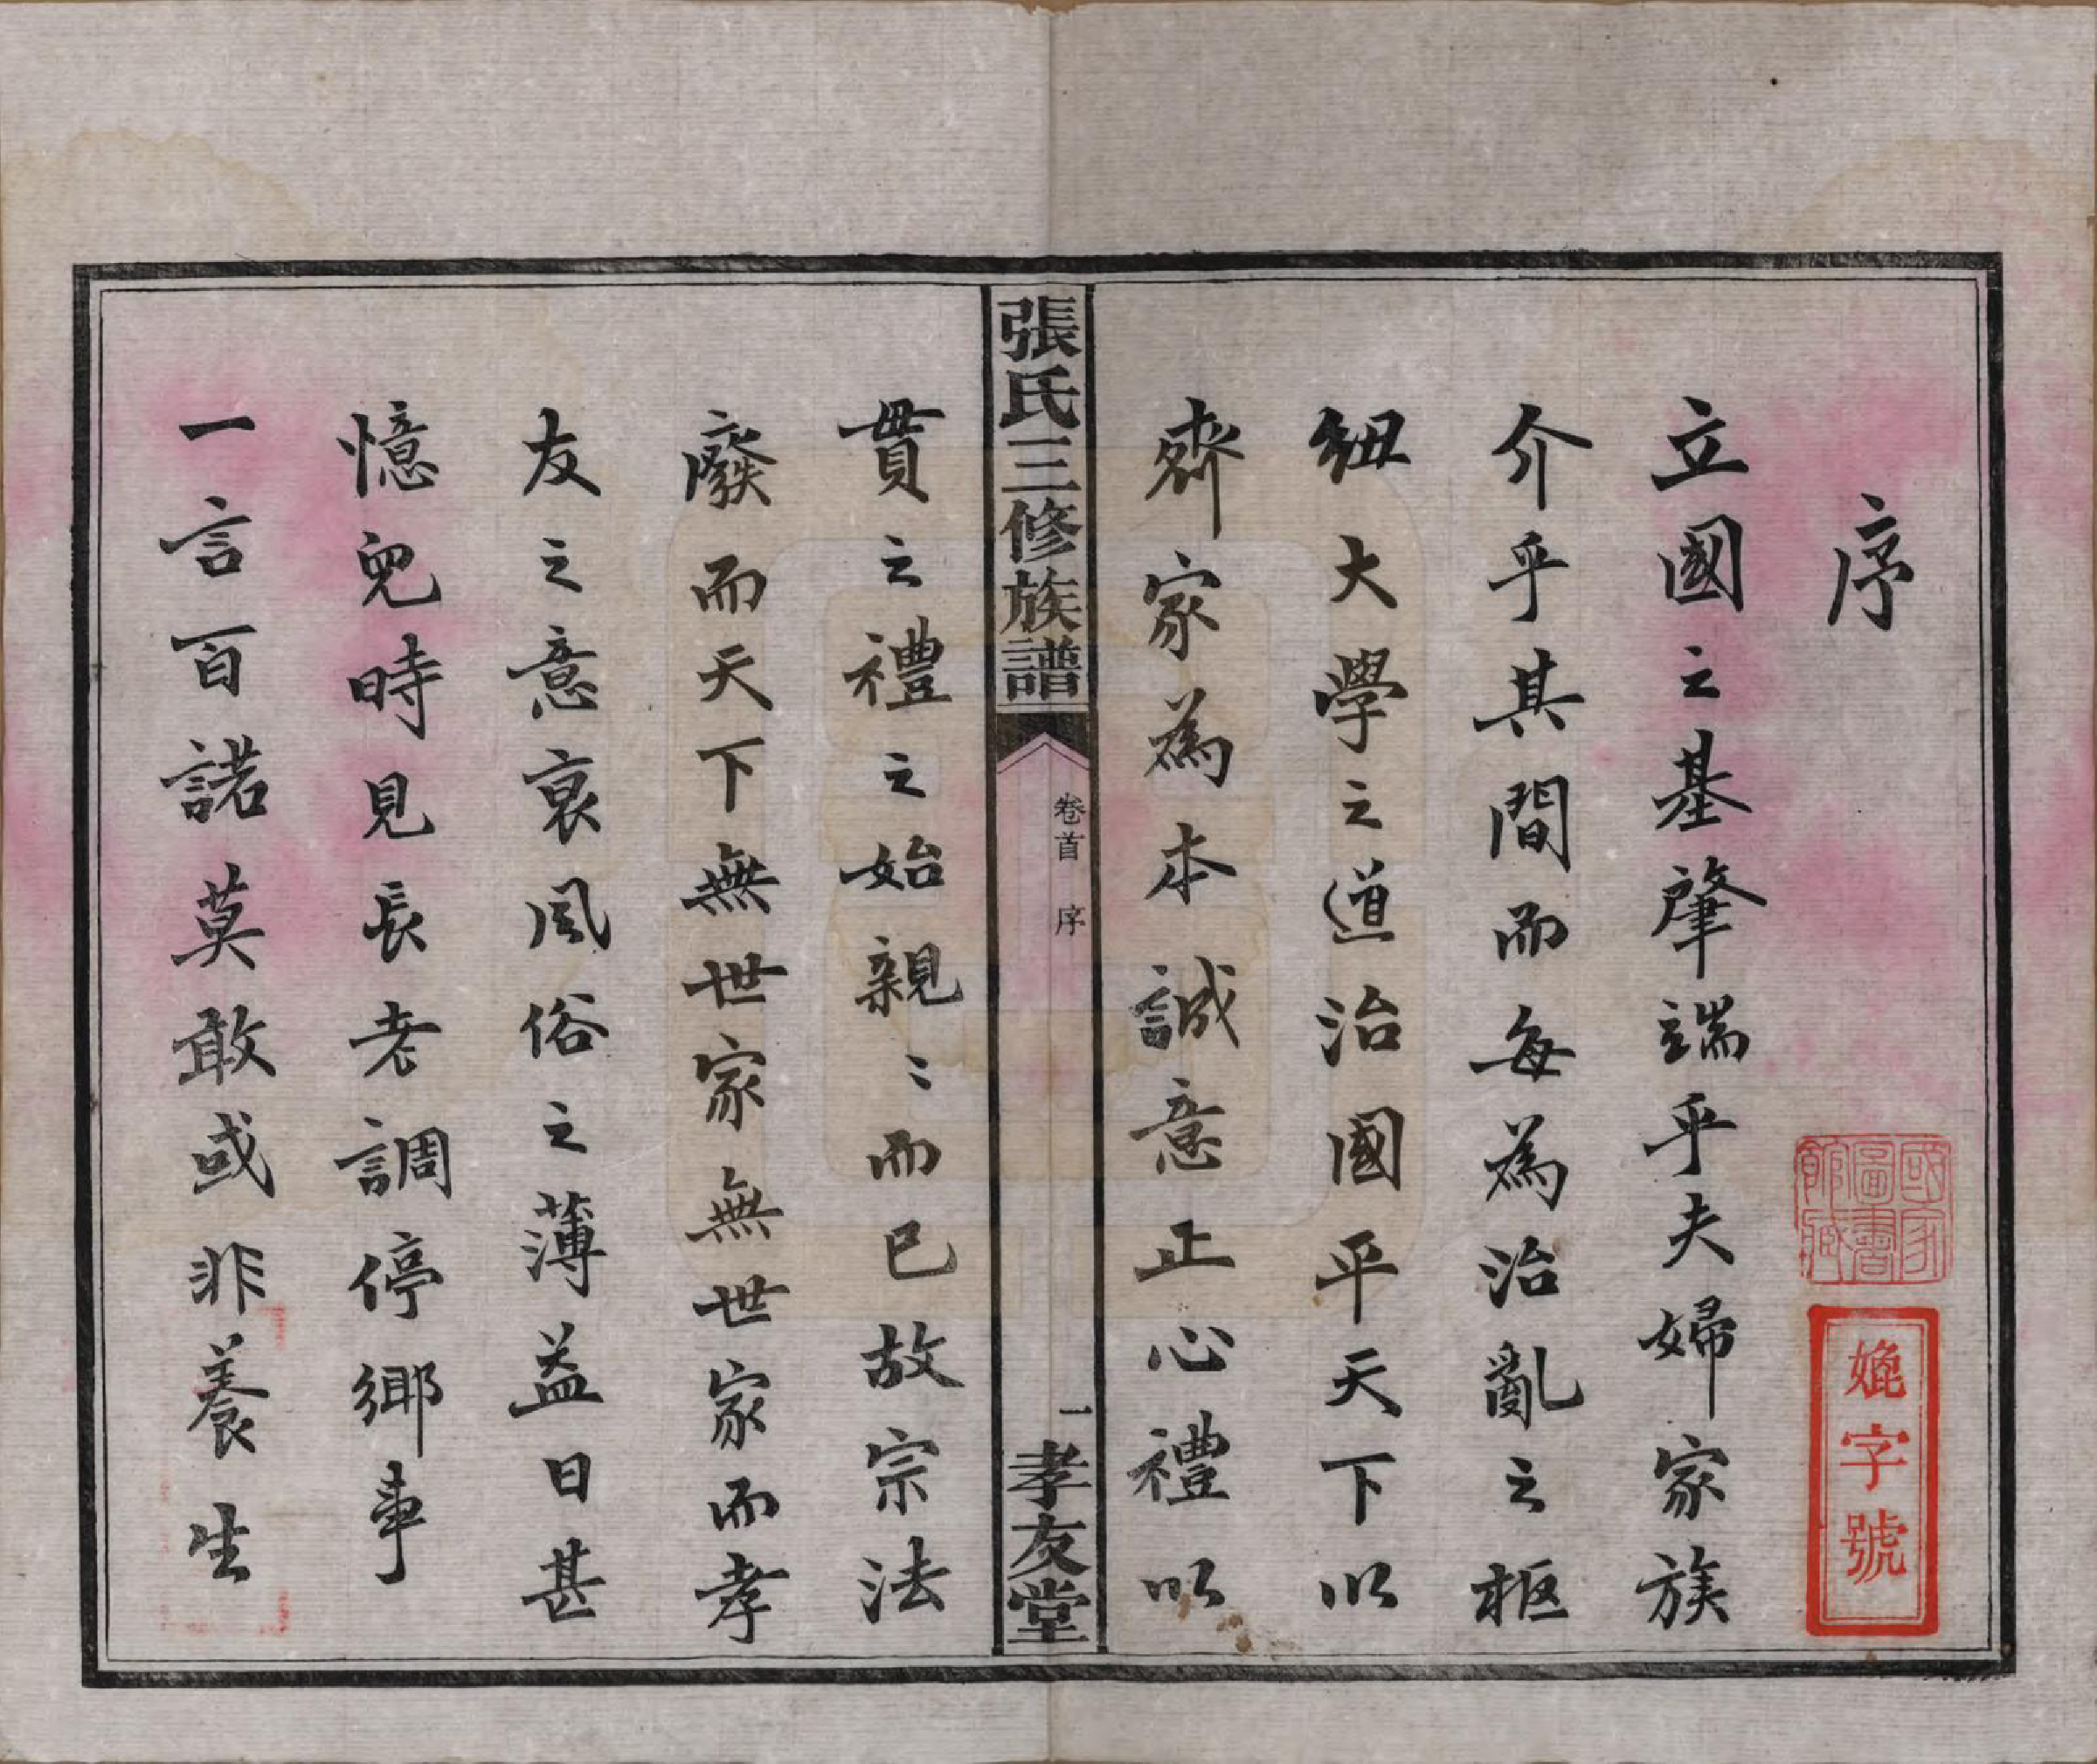 序
立國之基肇端乎夫婦家族
介乎其間而每為治亂之樞
紐大學之道治國平天下以
齊家為本誠意正心禮以
張氏三修族譜
卷首 序
一
孝友堂
貫之禮之始親〻而已故宗法
廢而天下無世家無世家而孝
友之意衰風俗之薄益日甚
憶兒時見長老調停鄉事
一言百諾莫敢或非養生
國家圖書館藏
字號